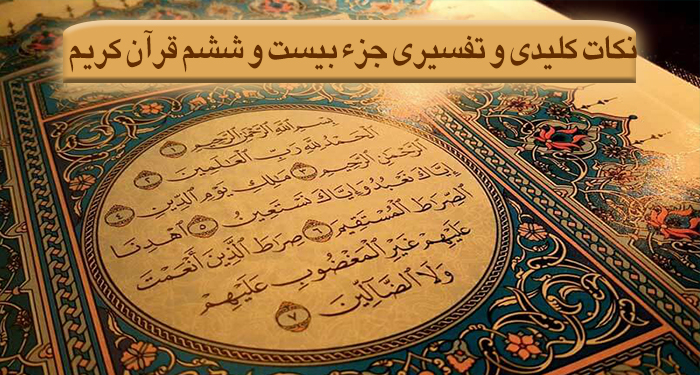 نکات کلیدی و تفسیری جزء بیست و ششم قرآن کریم
بِسْمِ ٱللَّهِ ٱلرَّحْمَٰنِ ٱلرَّحِيمِ ١
ٱلْحَمْدُ لِلَّهِ رَبِّ ٱلْعَٰلَمِينَ ٢
ٱلرَّحْمَٰنِ ٱلرَّحِيمِ ٣ مَٰلِكِ يَوْمِ ٱلدِّينِ ٤
إِيَّاكَ نَعْبُدُ وَإِيَّاكَ نَسْتَعِينُ ٥ ٱهْدِنَا
ٱلصِّرَٰطَ ٱلْمُسْتَقِيمَ ٦ صِرَٰطَ ٱلَّذِينَ أَنْعَمْتَ
عَلَيْهِمْ غَيْرِ ٱلْمَغْضُوبِ عَلَيْهِمْ
وَلَا ٱلضَّآلِّينَ ٧